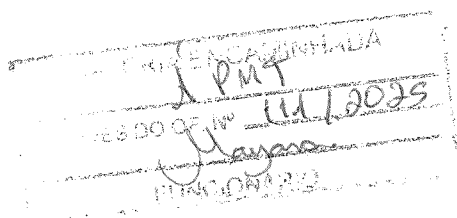 ENCAMINHADA
À PMT
DO OF Nº 111/2025
Mayara
FUNCIONÁRIO